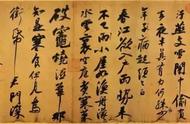 雪闇中偷負
去夜半真有力何殊病
少年子病起須已白
春江欲入戶雨勢來
不已雨小屋如漁舟濛濛
水雲裏空庖煮寒菜
破竈燒濕葦那
知是寒食但見烏
銜帋君門深